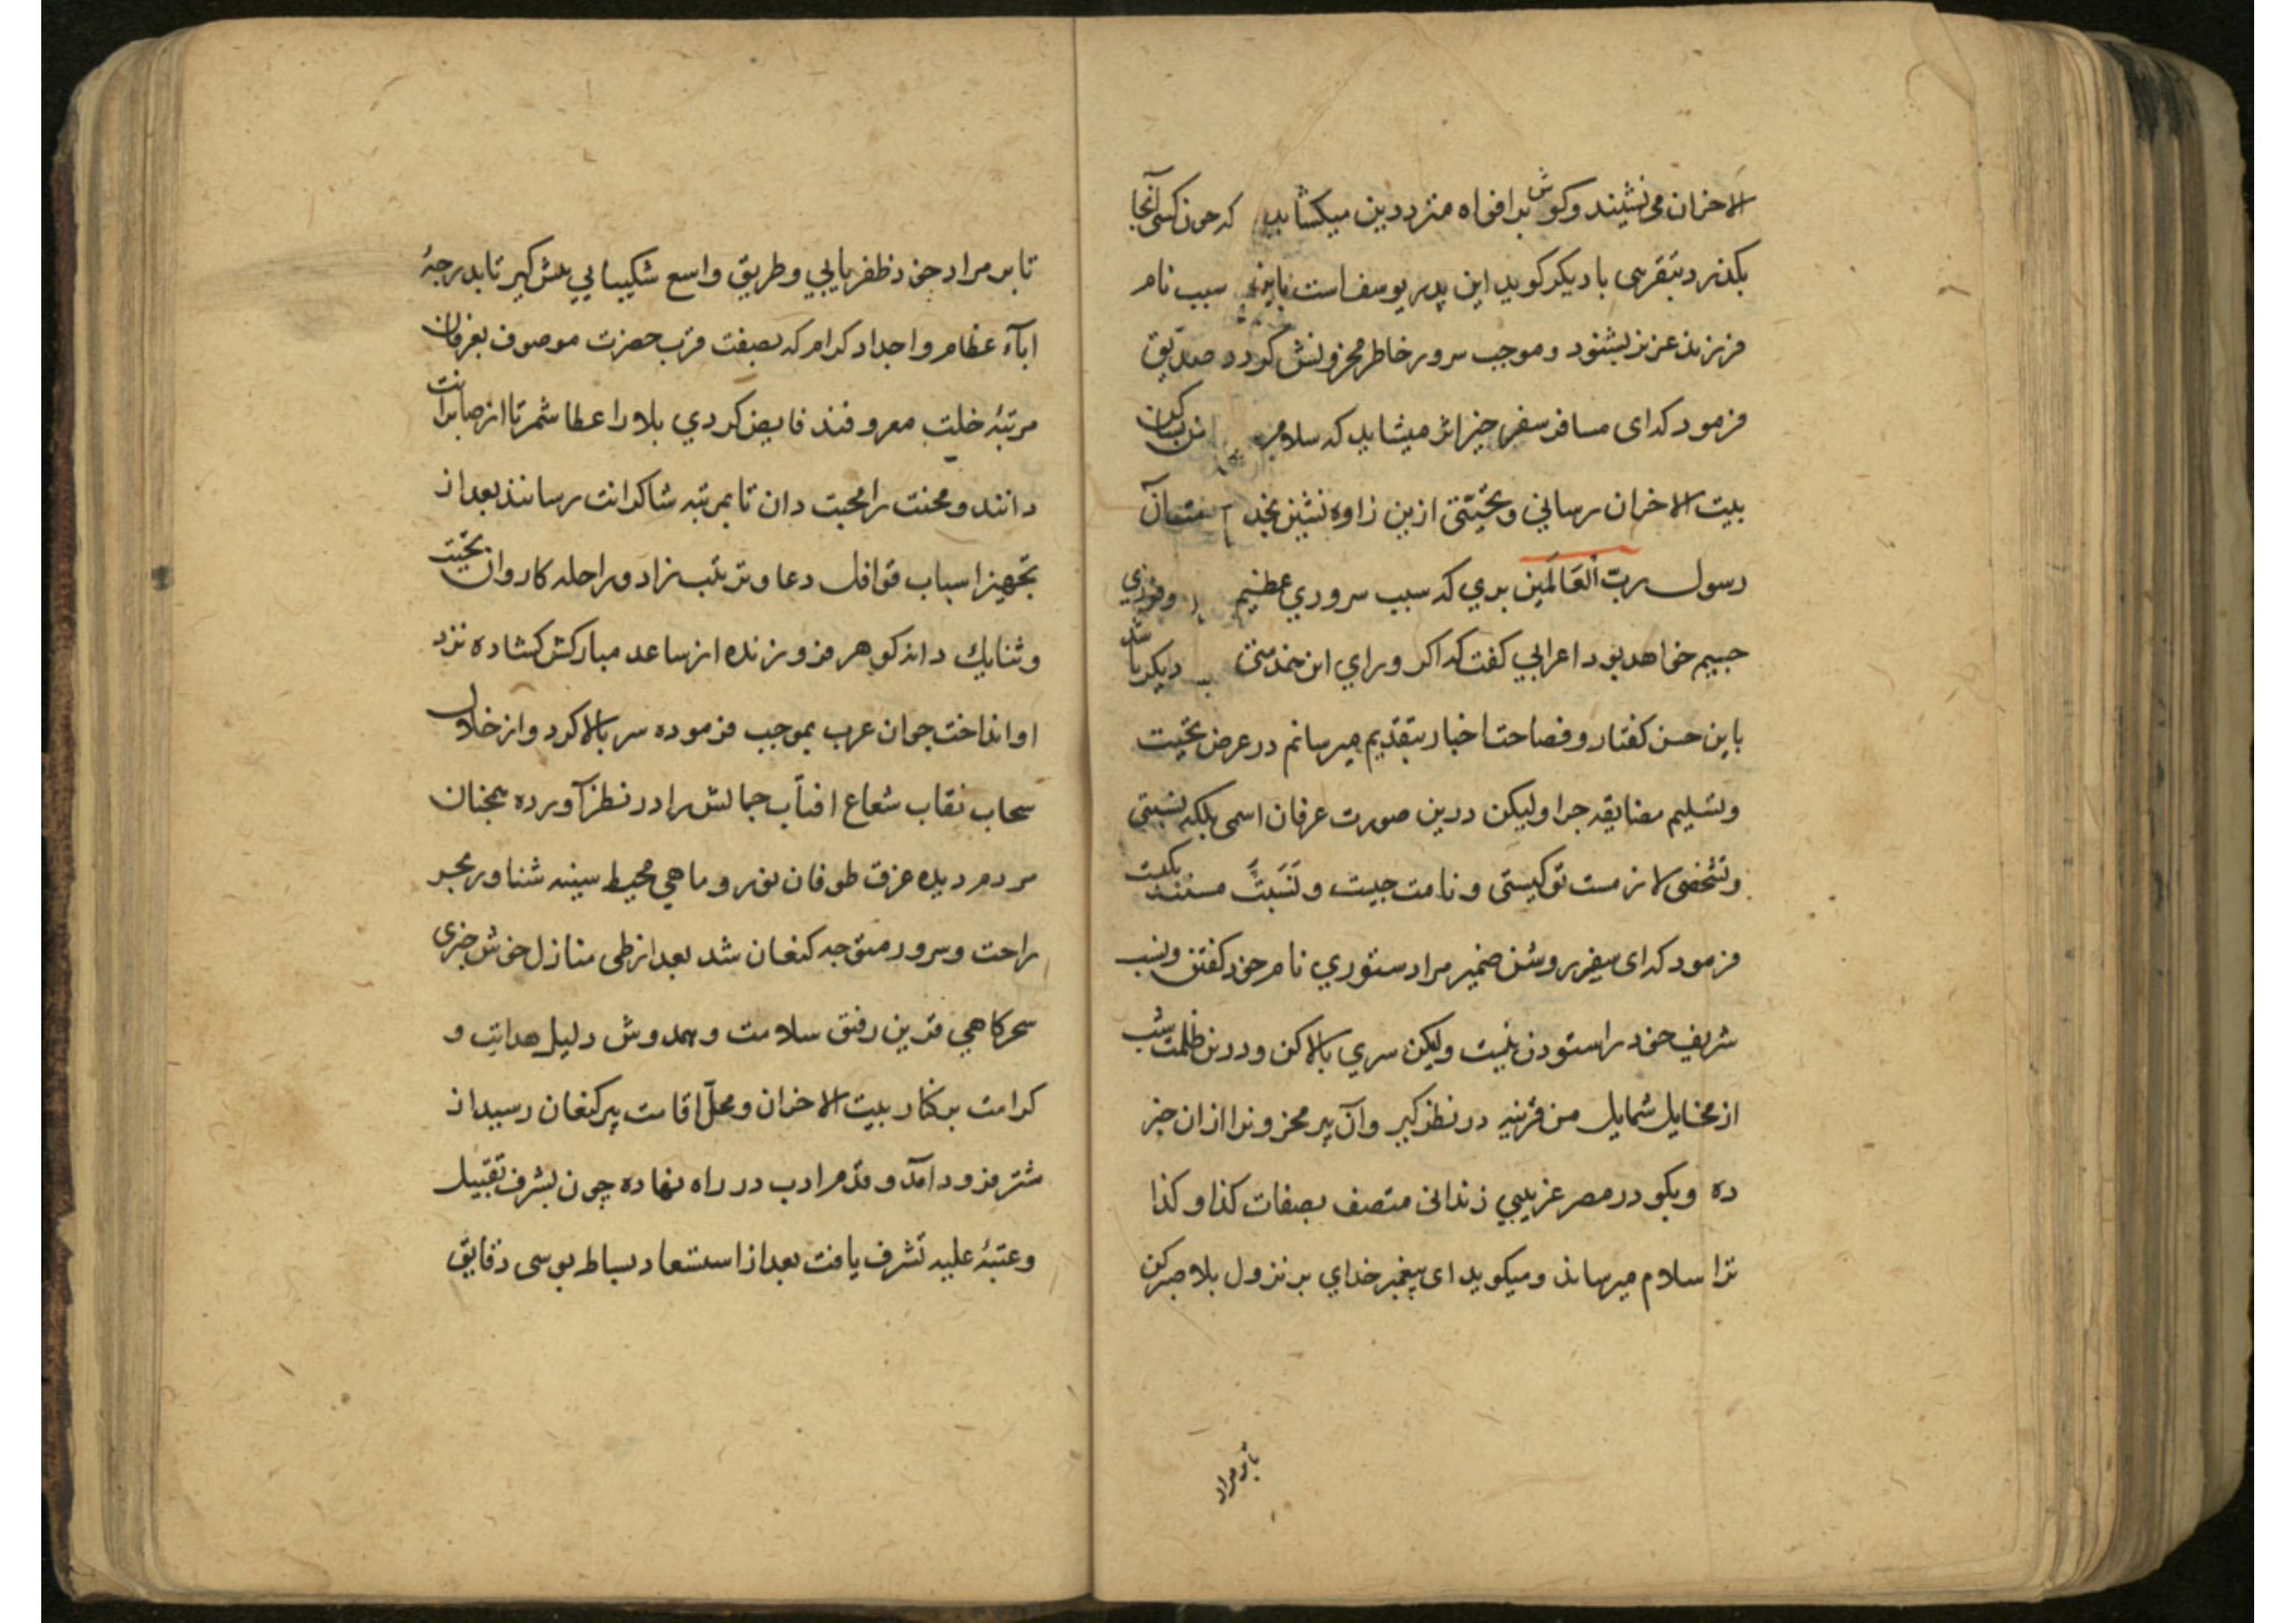 الاحزان می نشیند و کوش بر افواه مترددین میکشاید که چون کسی آنجا
بکذرد بتقریبی با دیکر کوید این پدر یوسف است باین سبب نام
فرزند عزیز بشنود و موجب سرور خاطر محزونش کردد صدیق
فرمود که ای مسافر سفر خیر اثر میشاید که سلام
بیت الاحزان رسانی و تحیتی ازین زاویه نشین
رسول رب اَلعَالَمین بری که سبب سروری عظیم
جسیم خواهد بود اعرابی کفت که اکر ورای این خدمتی دیکر باشد
باین حسن کفتار و فصاحت اخبار بتقدیم میرسانم در عرض تحیت
و تسلیم مضایقه جرا ولیکن درین صورت عرفان اسمی بلکه نسبتی
و تشخصی لازمست تو کیستی و نامت جیست و نَسَبَتَ مستند بکیست
فرمود که ای سفیر روشن ضمیر مرا دستوری نام خود کفتن و نسب
شریف خود را ستودن نیست ولیکن سری بالا کن و درین ظلمت شب
از مخایل شمایل من قرینه در نظر کیر و آن پیر محزون را ازان خبر
ده و بکو در مصر غریبی زندانی متصف بصفات کذا و کذا
ترا سلام میرساند و میکوید ای پیغمبر خدای بر نزول بلا صبر کن
تا بر مراد
تا بر مراد خود ظفر یابی و طریق واسع شکیبایی پیش کیر تا بدرجهٔ
ابآء عظام و اجداد کرام که بصفت قرب حضرت موصوف بعرفان
مرتبهٔ خلت معروفند فایض کردی بلا را عطا شمر تا از صابرانت
دانند و محنت را محبت دان تا بمرتبه شاکرانت رسانند بعد از
تجهیز اسباب قوافل دعا و ترتیب زاد و راحله کاروان تحیت
و ثنا یك دانه کوهر فروزنده از ساعد مبارکش کشاده نزد
او انداخت جوان عرب بموجب فرموده سر بالا کرد و از خلال
سحاب نقاب شعاع افتاب جمالش را در نظر آورده همجنان
مردم دیده غرق طوفان نور و ماهی محیط سینه شناور بحر
راحت و سرور متوجه کنعان شد بعد از طی منازل خوش خبری
سحرکاهی قرین رفیق سلامت و همدوش دلیل هدایت و
کرامت بر کنار بیت الاحزان و محلّ اقامت پیر کنعان رسید از
شتر فرود آمد و قدم ادب در راه نهاده چون بشرف تقبیل
و عتبهٔ علیه تشرف یافت بعد از استسعاد بساط بوسی دقایق